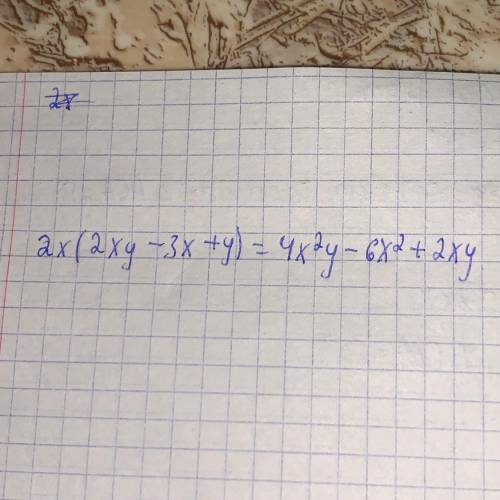 2x(2xy - 3x + y) = 4x²y - 6x² + 2xy